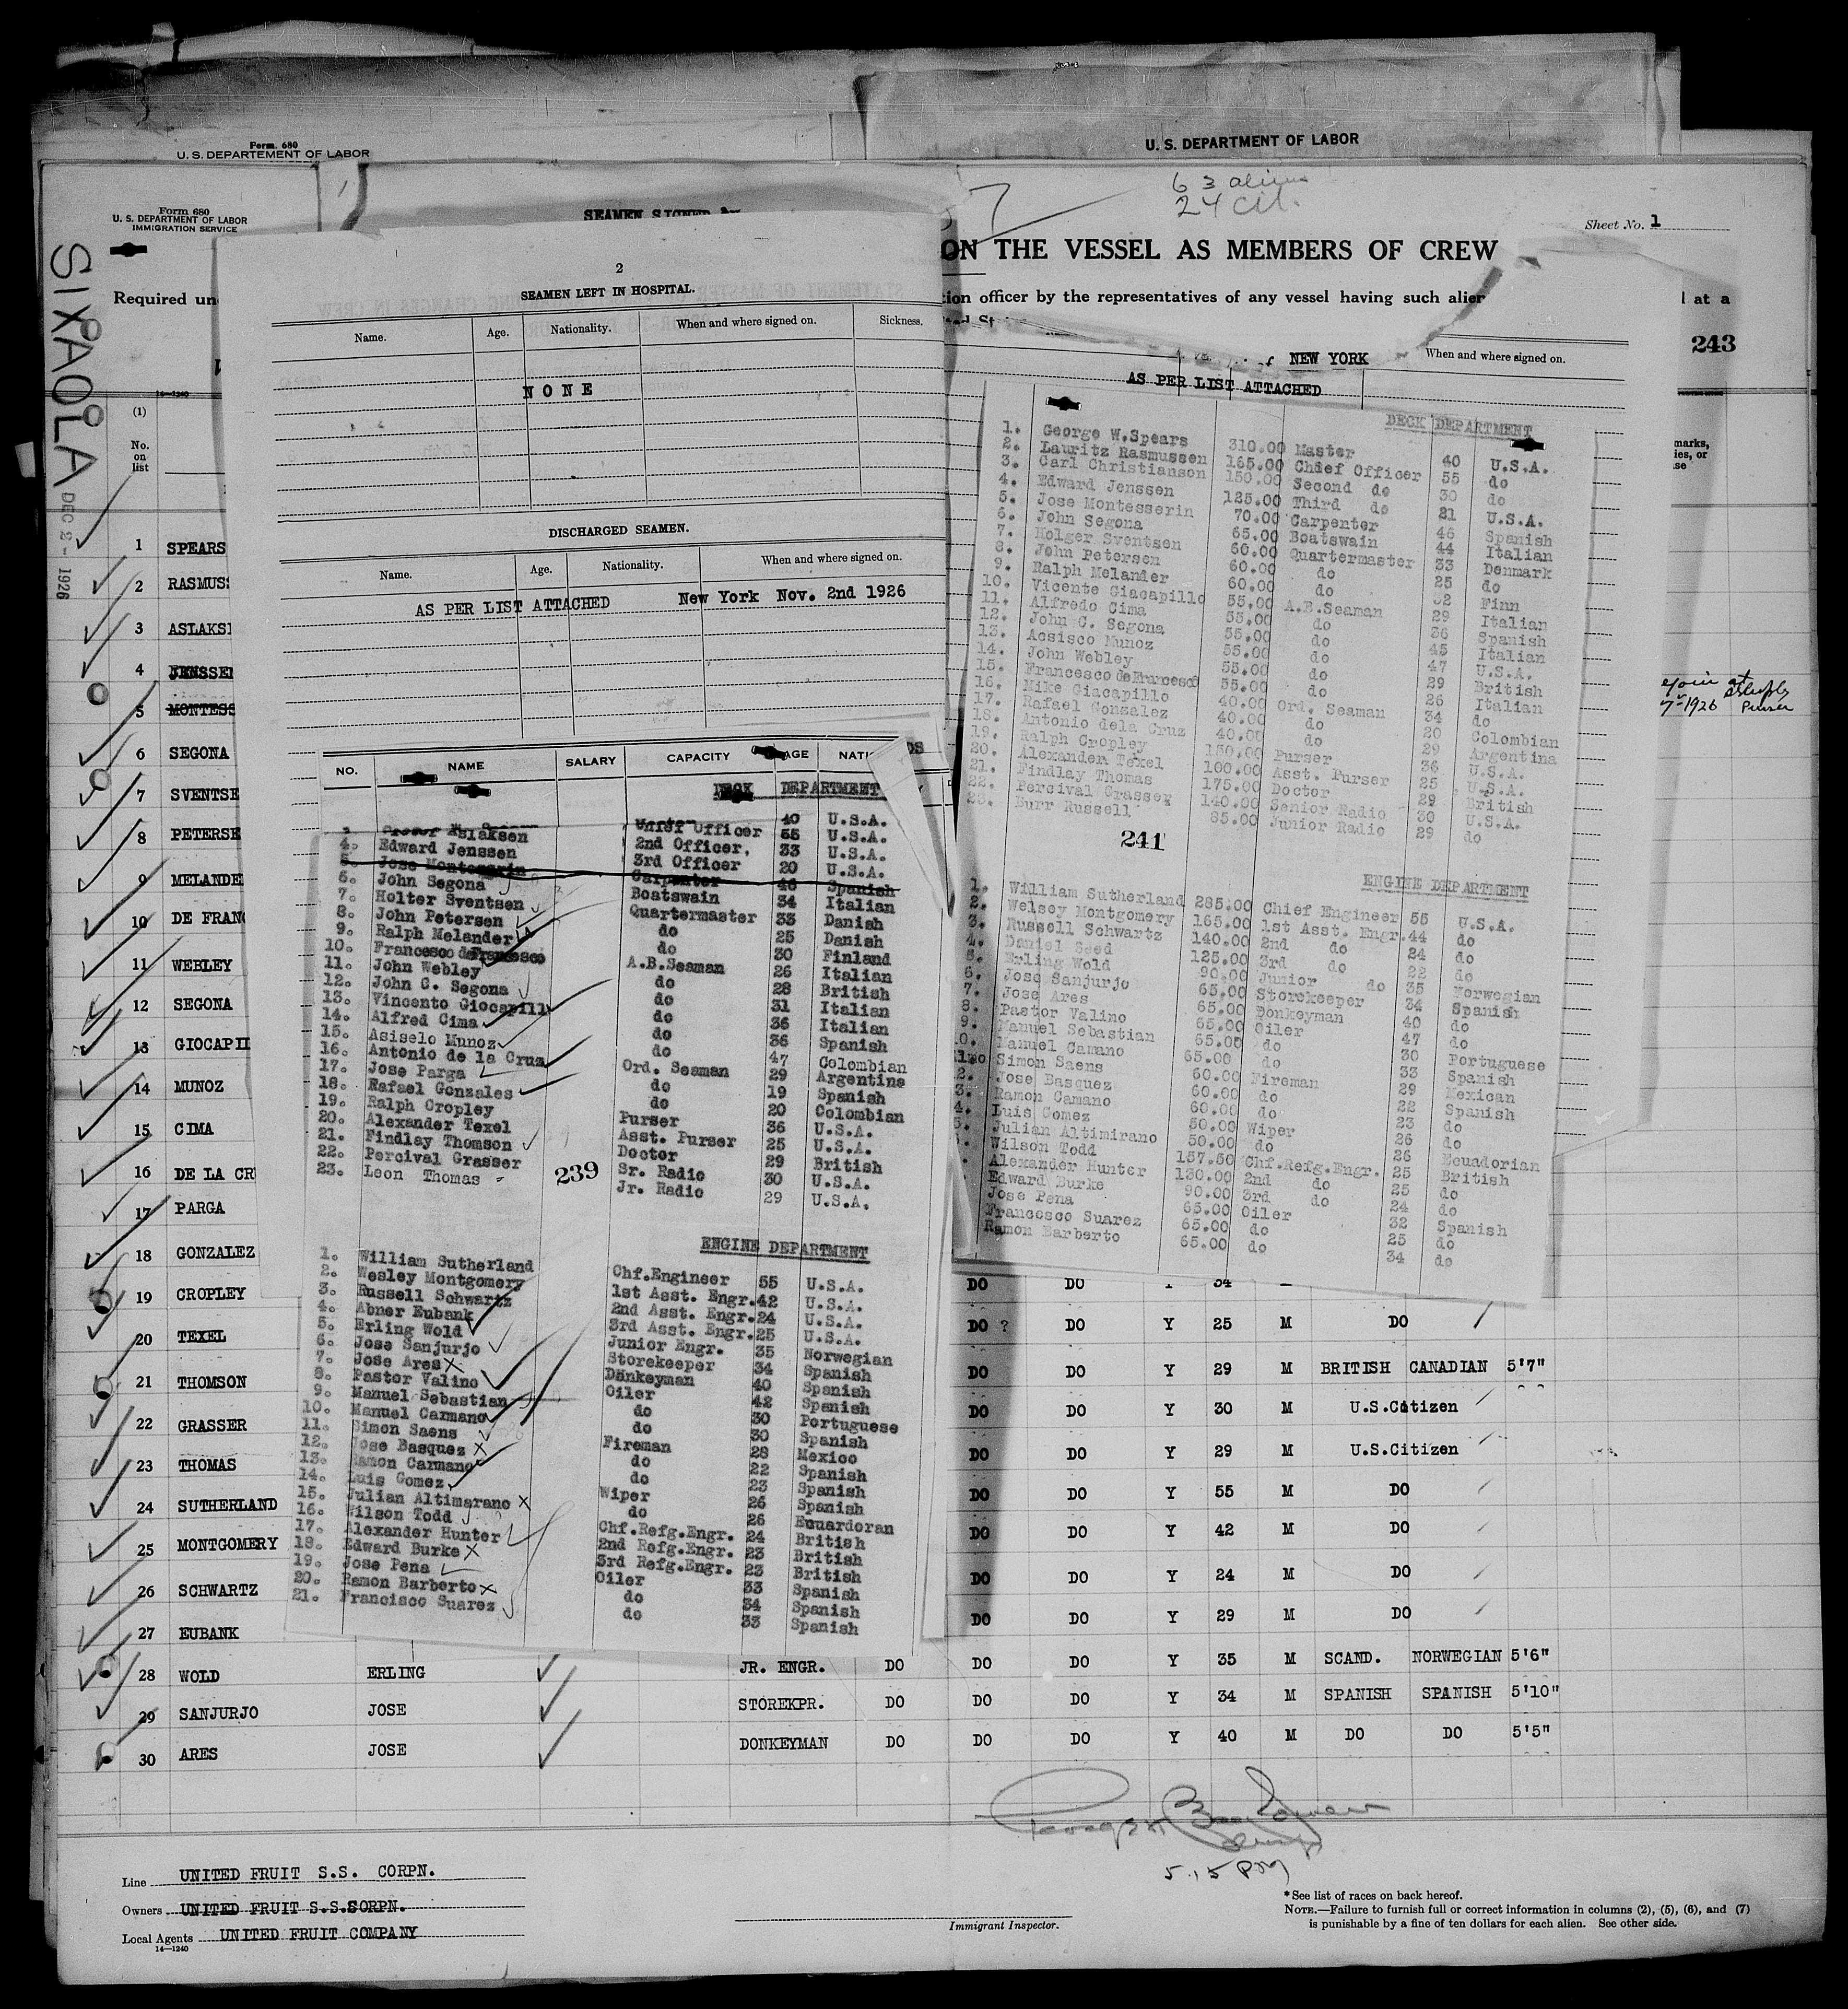 Form. 680
U. S. DEPARTEMENT OF LABOR
U. S. DEPARTMENT OF LABOR
Form 680
U. S. DEPARTMENT OF LABOR
IMMIGRATION SERVICE
SIXAOLA
DEC 2 - 1926
63 aliens
24 cit.
Sheet No. 1
ON THE VESSEL AS MEMBERS OF CREW
Required un
tion officer by the representatives of any vessel having such alien
l at a
243
SEAMEN SIGNED
2
SEAMEN LEFT IN HOSPITAL.
Name. Age. Nationality. When and where signed on. Sickness.
NONE
DISCHARGED SEAMEN.
Name. Age. Nationality. When and where signed on.
AS PER LIST ATTACHED New York Nov. 2nd 1926
NO. NAME SALARY CAPACITY AGE NATI
DECK DEPARTMENT
40 U.S.A.
Aslaksen Chief Officer 55 U.S.A.
4. Edward Jenssen 2nd Officer, 33 U.S.A.
5. Jose Montesarin 3rd Officer 20 U.S.A.
6. John Segona Carpenter 46 Spanish
7. Holter Sventsen Boatswain 34 Italian
8. John Petersen Quartermaster 33 Danish
9. Ralph Melander do 25 Danish
10. Francesco de Francesco do 30 Finland
11. John Webley A.B.Seaman 26 Italian
12. John C. Segona do 28 British
13. Vincento Giocapilly do 31 Italian
14. Alfred Cima do 36 Italian
15. Asiselo Munoz do 36 Spanish
16. Antonio de la Cruz do 47 Colombian
17. Jose Parga Ord. Seaman 29 Argentine
18. Rafael Gonzales do 19 Spanish
19. Ralph Cropley do 20 Colombian
20. Alexander Texel Purser 36 U.S.A.
21. Findlay Thomson Asst. Purser 25 U.S.A.
22. Percival Grasser Doctor 29 British
23. Leon Thomas Sr. Radio 30 U.S.A.
239 Jr. Radio 29 U.S.A.
ENGINE DEPARTMENT
1. William Sutherland Chf.Engineer 55 U.S.A.
2. Wesley Montgomery 1st Asst. Engr. 42 U.S.A.
3. Russell Schwartz 2nd Asst. Engr. 24 U.S.A.
4. Abner Eubank 3rd Asst. Engr. 25 U.S.A.
5. Erling Wold Junior Engr. 35 Norwegian
6. Jose Sanjurjo Storekeeper 34 Spanish
7. Jose Ares Donkeyman 40 Spanish
8. Pastor Valino Oiler 42 Spanish
9. Manuel Sebastian do 30 Portuguese
10. Manuel Carmano do 30 Spanish
11. Simon Saens Fireman 28 Mexico
12. Jose Basquez do 22 Spanish
13. Ramon Carmano do 23 Spanish
14. Luis Gomez Wiper 26 Spanish
15. Julian Altimarano do 26 Ecuardoran
16. Wilson Todd Chf.Refg.Engr. 24 British
17. Alexander Hunter 2nd Refg.Engr. 23 British
18. Edward Burke 3rd Refg.Engr. 23 British
19. Jose Pena Oiler 33 Spanish
20. Ramon Barberto do 34 Spanish
21. Francisco Suarez do 33 Spanish
of NEW YORK When and where signed on.
AS PER LIST ATTACHED
DECK DEPARTMENT
1. George W.Spears 310.00 Master 40 U.S.A.
2. Lauritz Rasmussen 165.00 Chief Officer 55 do
3. Carl Christianson 150.00 Second do 30 do
4. Edward Jenssen 125.00 Third do 21 U.S.A.
5. Jose Montesserin 70.00 Carpenter 46 Spanish
6. John Segona 65.00 Boatswain 44 Italian
7. Holger Sventsen 60.00 Quartermaster 33 Denmark
8. John Petersen 60.00 do 25 do
9. Ralph Melander 60.00 do 32 Finn
10. Vicente Giacapillo 55.00 A.B.Seaman 29 Italian
11. Alfredo Cima 55.00 do 36 Spanish
12. John C. Segona 55.00 do 45 Italian
13. Acsisco Munoz 55.00 do 47 U.S.A.
14. John Webley 55.00 do 29 British
15. Francesco de Francesco 55.00 do 26 Italian
16. Mike Giacapillo 40.00 Ord. Seaman 34 do
17. Rafael Gonzalez 40.00 do 20 Colombian
18. Antonio dela Cruz 40.00 do 29 Argentina
19. Ralph Cropley 150.00 Purser 36 U.S.A.
20. Alexander Texel 100.00 Asst. Purser 25 U.S.A.
21. Findlay Thomas 175.00 Doctor 29 British
22. Percival Grasser 140.00 Senior Radio 30 U.S.A.
23. Burr Russell 85.00 Junior Radio 29 do
241
ENGINE DEPARTMENT
1. William Sutherland 285.00 Chief Engineer 55 U.S.A.
2. Welsey Montgomery 165.00 1st Asst. Engr. 44 do
3. Russell Schwartz 140.00 2nd do 24 do
4. Daniel Seed 125.00 3rd do 22 do
5. Erling Wold 90.00 Junior do 35 Norwegian
6. Jose Sanjurjo 65.00 Storekeeper 34 Spanish
7. Jose Ares 65.00 Donkeyman 40 do
8. Pastor Valino 65.00 Oiler 47 do
9. Manuel Sebastian 65.00 do 30 Portuguese
10. Manuel Camano 65.00 do 33 Spanish
Simon Saens 60.00 Fireman 29 Mexican
2. Jose Basquez 60.00 do 22 Spanish
3. Ramon Camano 60.00 do 23 do
4. Luis Gomez 50.00 Wiper 26 do
5. Julian Altimirano 50.00 do 26 Ecuadorian
Wilson Todd 157.50 Chf.Refg.Engr. 25 British
Alexander Hunter 130.00 2nd do 25 do
Edward Burke 90.00 3rd do 24 do
Jose Pena 65.00 Oiler 32 Spanish
Francesco Suarez 65.00 do 25 do
Ramon Barberto 65.00 do 34 do
14—1240
(1)
No.
on
list
1 SPEARS
2 RASMUSS
3 ASLAKSE
4 JENSSEN
5 MONTESS
6 SEGONA
7 SVENTSE
8 PETERSE
9 MELANDE
10 DE FRANC
11 WEBLEY
12 SEGONA
13 GIOCAPIL
14 MUNOZ
15 CIMA
16 DE LA CR
17 PARGA
18 GONZALEZ
19 CROPLEY DO DO Y 34
20 TEXEL DO ? DO Y 25 M DO
21 THOMSON DO DO Y 29 M BRITISH CANADIAN 5'7"
22 GRASSER DO DO Y 30 M U.S.Citizen
23 THOMAS DO DO Y 29 M U.S.Citizen
24 SUTHERLAND DO DO Y 55 M DO
25 MONTGOMERY DO DO Y 42 M DO
26 SCHWARTZ DO DO Y 24 M DO
27 EUBANK DO DO Y 29 M DO
28 WOLD ERLING JR. ENGR. DO DO DO Y 35 M SCAND. NORWEGIAN 5'6"
29 SANJURJO JOSE STOREKPR. DO DO DO Y 34 M SPANISH SPANISH 5'10"
30 ARES JOSE DONKEYMAN DO DO DO Y 40 M DO DO 5'5"
marks,
ies, or
ase
at
7-1926 Purser
5.15 PM
Line UNITED FRUIT S.S. CORPN.
Owners UNITED FRUIT S.S.CORPN.
Local Agents UNITED FRUIT COMPANY
14—1240
Immigrant Inspector.
* See list of races on back hereof.
NOTE.—Failure to furnish full or correct information in columns (2), (5), (6), and (7)
is punishable by a fine of ten dollars for each alien. See other side.